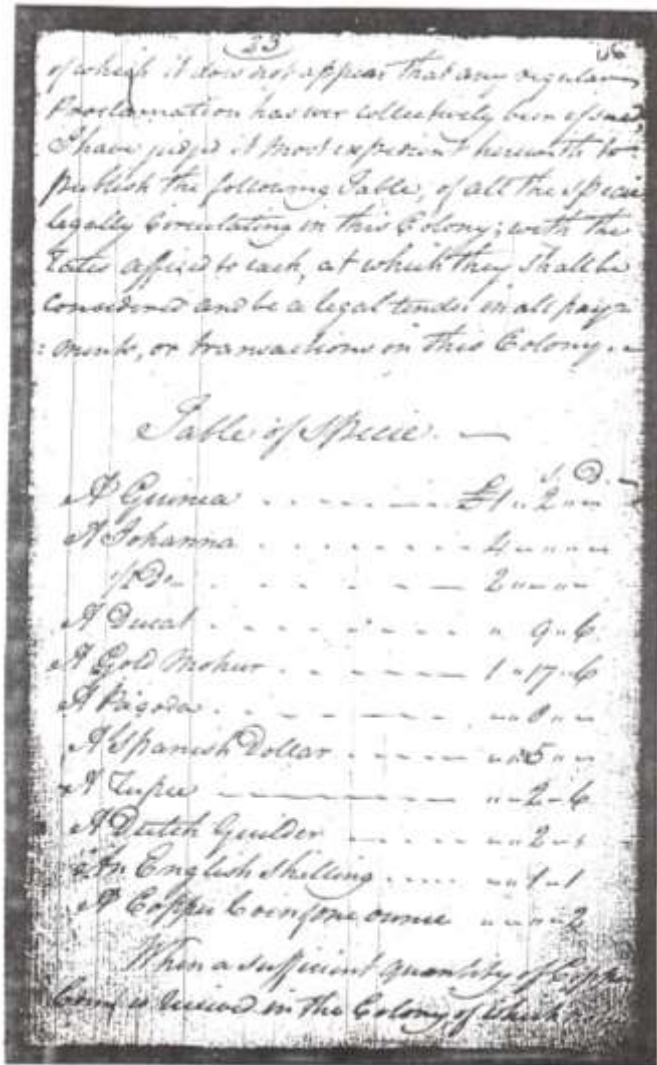 23
of which it does not appear that any regular
Proclamation has ever collectively been issued,
I have judged it most expedient herewith to
publish the following Table, of all the specie
legally Circulating in this Colony; with the
rates affixed to each, at which they shall be
considered and be a legal tender in all pay=
:ments, or transactions in this Colony. —
Table of Specie. —
s. D.
A Guinea - - - - - £1 " 2 " "
A Johanna - - - - - 4 " " " "
½ Do - - - - - 2 " " " "
A Ducat - - - - - " 9 " 6
A Gold Mohur - - - - - 1 " 17 " 6
A Pagoda - - - - - " " 8 " "
A Spanish Dollar - - - - - " " 5 " "
A Rupee - - - - - " " 2 " 6
A Dutch Guilder - - - - - " " 2 " "
An English Shilling - - - - - " " 1 " 1
A Copper Coin of one ounce " " " " 2
When a sufficient quantity of
Coin is received in the Colony, of which